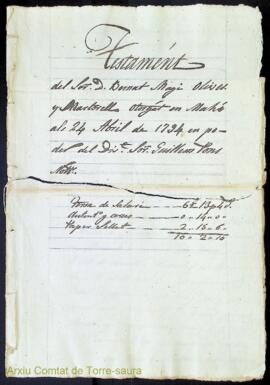 Testamént
del Sor. D. Bernat Moja Olives
y Martorell otorgat en Mahó
als 24 Abril de 1794 en po-
der del Dist. Sor. Guillem Pons
Nott.
de Salari 6 13 4
0 14 0
Paper Sellat 2 15 6
10 2 10
Arxiu Comtat de Torre-saura